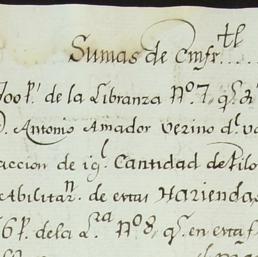 Sumas de Cmfr.^tl....
700 p.^s de la Libranza N.º 7, q.^e
D. Antonio Amador Vezino d.^e
accion de ig.^l Cantidad de Pilo
eAbilitar.^n de estas Haziendas
6 p.^s de la L.^ra N.º 8, q.^e en esta f